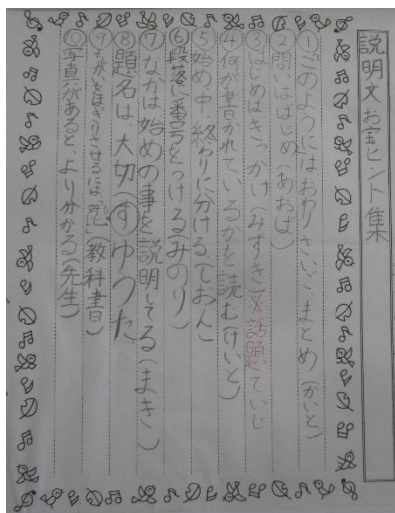 説明文お宝ヒント集
①このようにはおわりさいごまとめ(かいと)
②問いははじめ(あおば)
③はじめはきっかけ(みずき)※話題ていじ
④何が書かれているかを読む(けいと)
⑤始め中終わりに分ける(しおん)
⑥段落に番号をつける(みのり)
⑦なかは始めの事を説明してる(まき)
⑧題名は大切(す)ゆった
教科書
⑩写真があると、より分かる(先生)